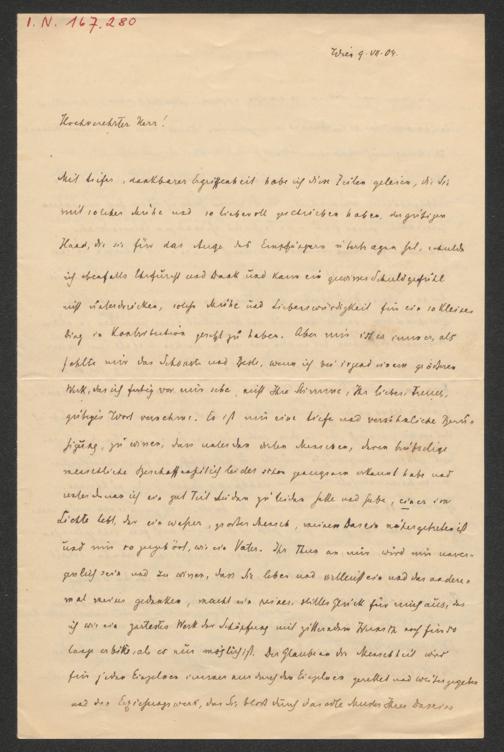 I. N. 167.280
Wien 9. VII. 04.
Hochverehrter Herr!
Mit tiefer, dankbarer Ergriffenheit habe ich diese Zeilen gelesen, die Sie
mit solcher Mühe und so liebevoll geschrieben haben, der gütigen
Hand, die sie für das Auge des Empfängers übertragen hat, schulde
ich ebenfalls Ehrfurcht und Dank und kann ein gewisses Schuldgefühl
nicht unterdrücken, solche Mühe und Liebenswürdigkeit für ein so kleines
Ding in Kontribution gesetzt zu haben. Aber mir ist es immer, als
fehlte mir das Schönste und Beste, wenn ich bei irgend einem größeren
Werk, das ich fertig vor mir sehe, nicht Ihre Stimme, Ihr liebes, treues,
gütiges Wort vernehme. Es ist mir eine tiefe und versöhnliche
zu wissen, dass unter den vielen Menschen, deren
menschliche Beschaffenheit ich leider schon genugsam erkannt habe und
unter denen ich ein gut Teil Leiden zu leiden hatte und habe, einer im
Lichte lebt, der ein wahrer, großer Mensch, meinem Dasein näher getreten ist
und mir so zugehört, wie ein Vater. Ihr Thun an mir wird mir unver-
gesslich sein und zu wissen, dass Sie leben und vielleicht ein und das andere-
mal meiner gedenken, macht ein reines, stilles Glück für mich aus, das
ich wie ein zartestes Werk der Schöpfung mit zitterndem noch für so
lange erbitte, als es nur möglich ist. Der Glaube an die Menschheit wird
für jeden Einzelnen immer nur durch den Einzelnen gerettet und weitergegeben
und das Erziehungswerk, das Sie bloß durch das edle Muster Ihres Daseins